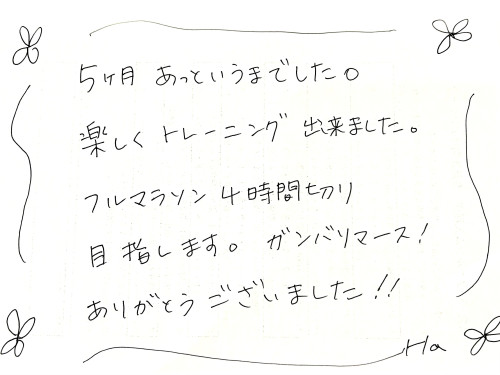 5ヶ月 あっというまでした。
楽しく トレーニング 出来ました。
フルマラソン 4時間切り
目指します。 ガンバリマース!
ありがとう ございました!!
Ha